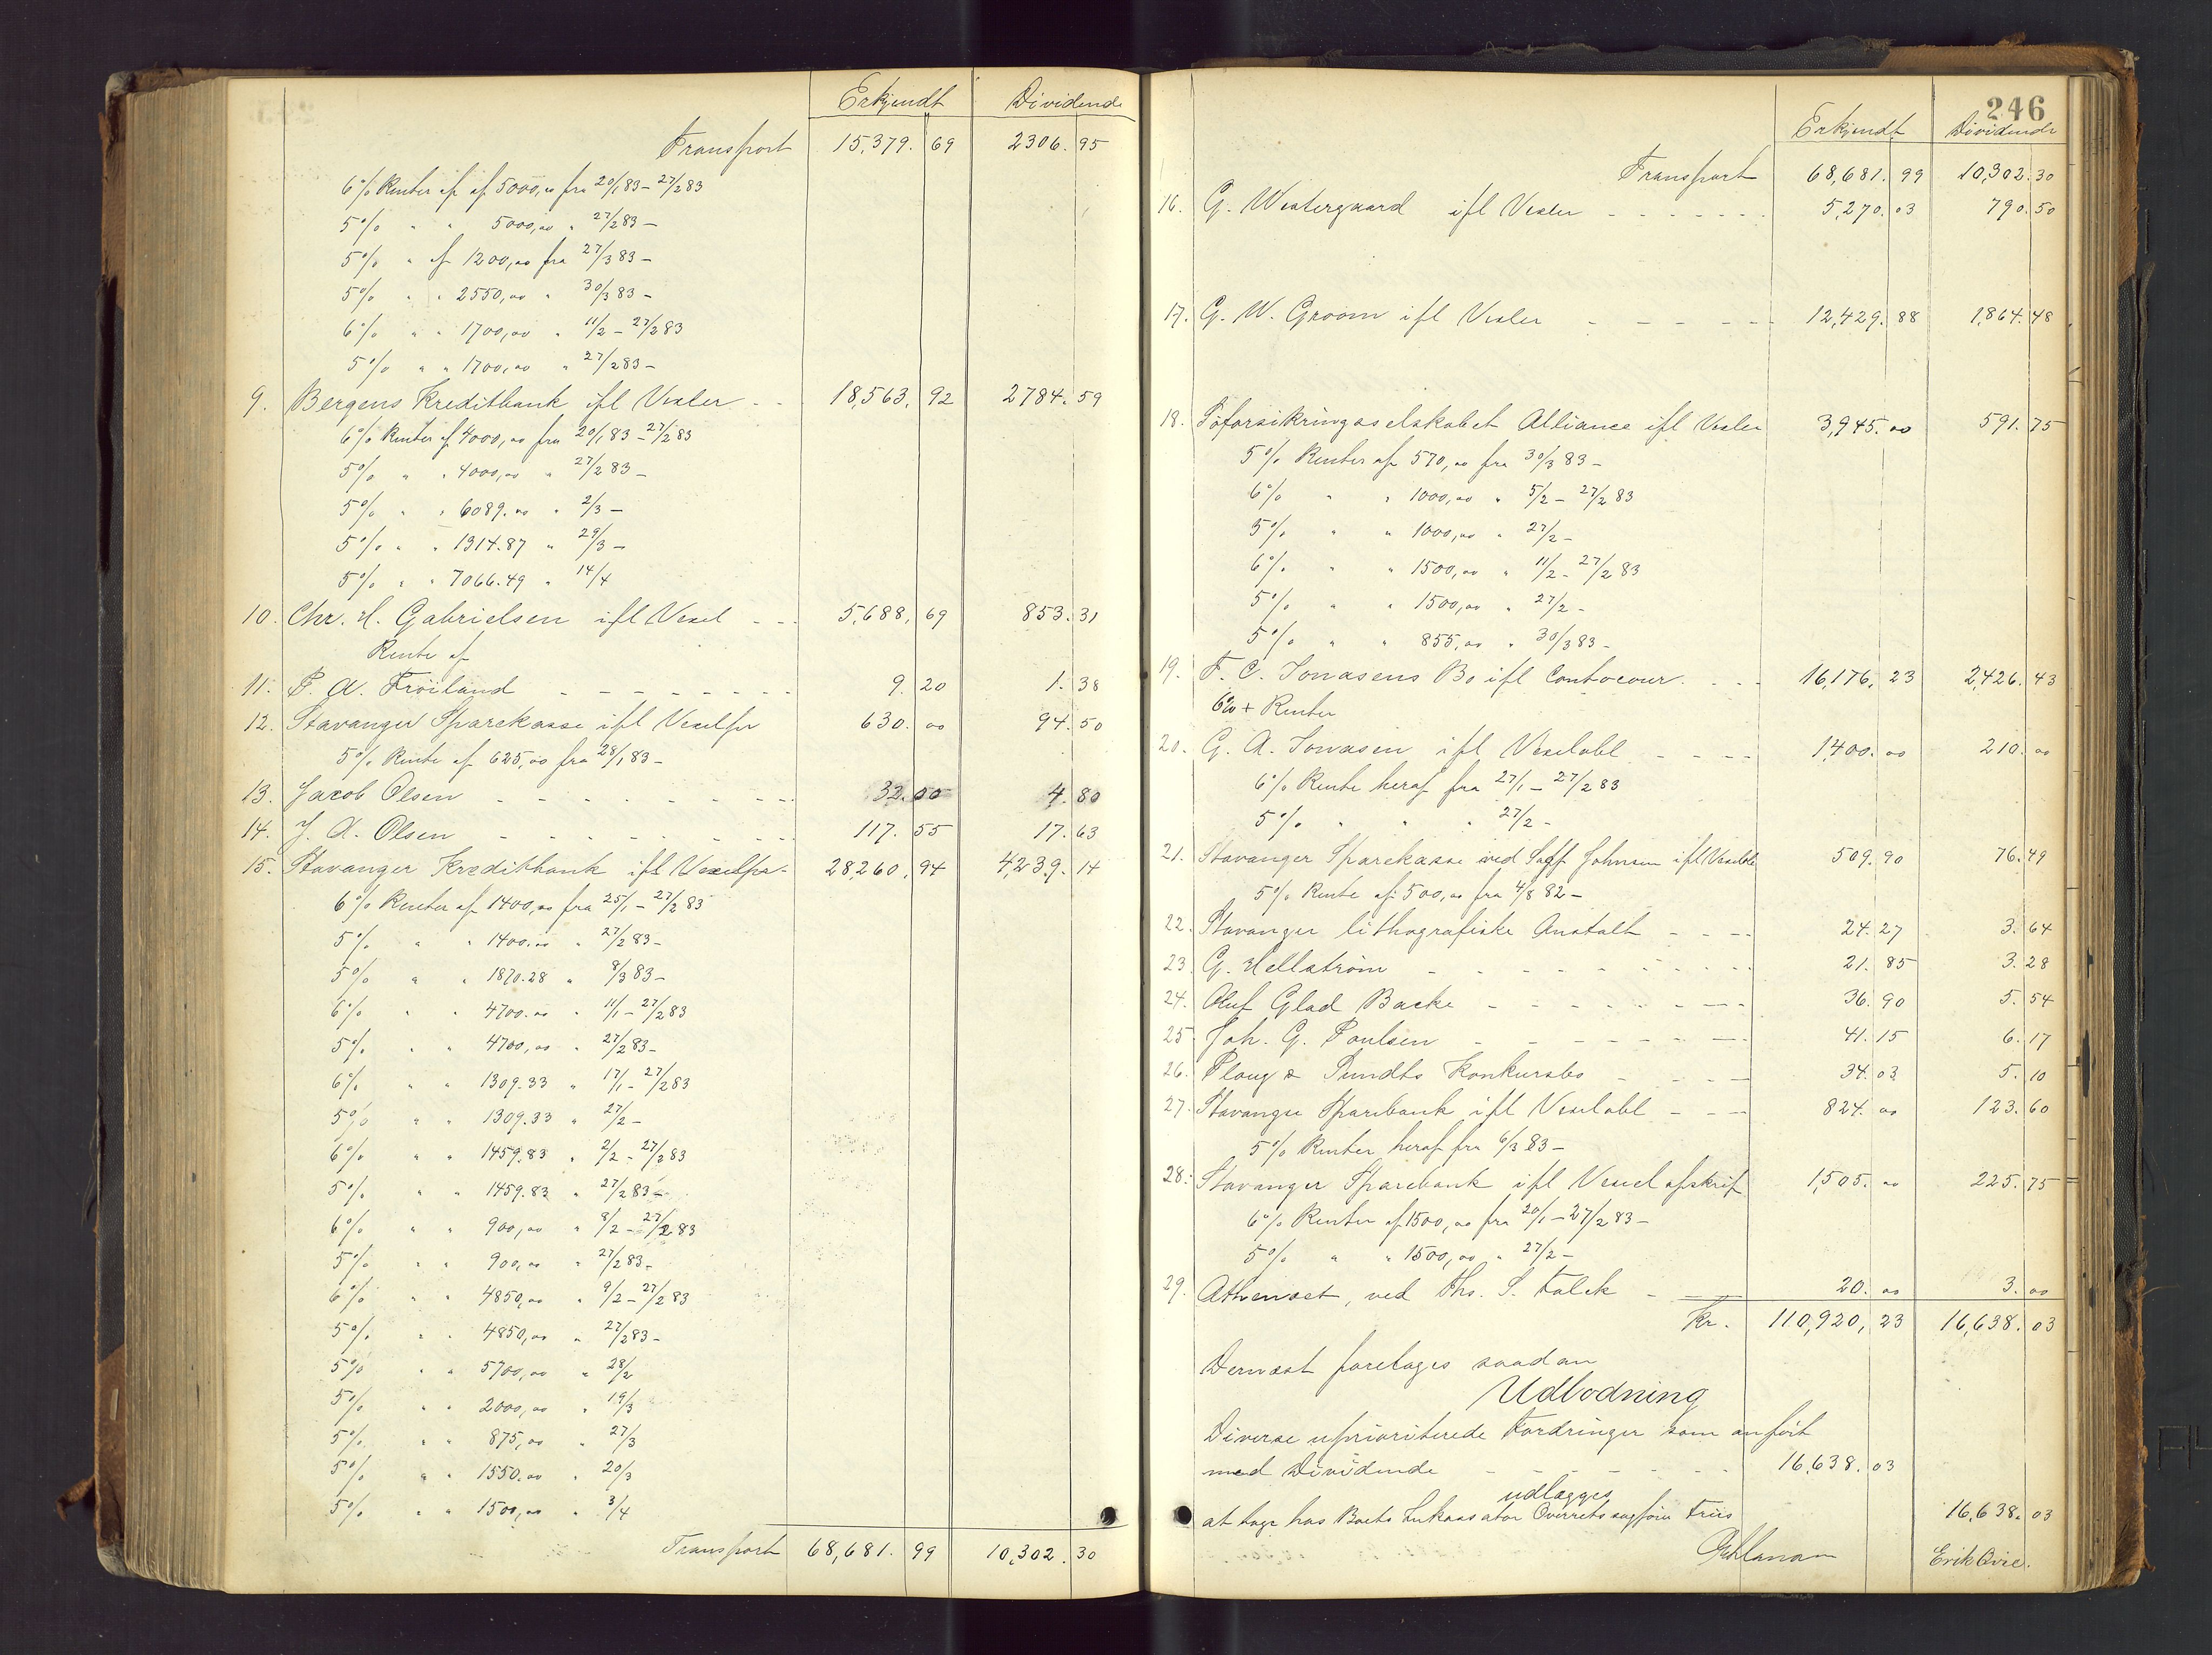 Erkjendt Dividende
Transport 15,379.69 2306.95
6% Renter af 5000,00 fra 20/1 83 - 27/2 83
5% " " 5000,00 " 27/2 83 -
5% " af 1200,00 fra 27/3 83 -
5% " " 2550,00 " 30/3 83 -
6% " " 1700,00 " 11/2 - 27/2 83
5% " " 1700,00 " 27/2 83 -
9. Bergens Kreditbank ifl Vexler - - 18,563.92 2784.59
6% Renter af 4000,00 fra 20/1 83 - 27/2 83
5% " " 4000,00 " 27/2 83 -
5% " " 6089.00 " 2/3 -
5% " " 1314.87 " 29/3 -
5% " " 7066.49 " 14/4
10. Chr. H. Gabrielsen ifl Vexel - - - 5,688.69 853.31
Rente af
11. P. A. Fröiland - - - - - - - - 9.20 1.38
12. Stavanger Sparekasse ifl Vexelfor 630.00 94.50
5% Rente af 625,00 fra 28/1 83 -
13. Jacob Olsen - - - - - - - - - 32.00 4.80
14. J. A. Olsen - - - - - - - - - 117.55 17.63
15. Stavanger Kreditbank ifl - 28,260.94 4,239.14
6% Renter af 1400,00 fra 25/1 - 27/2 83
5% " " 1400.00 " 27/2 83 -
5% " " 1870.28 " 8/3 83 -
6% " " 4700.00 " 11/1 - 27/2 83
5% " " 4700,00 " 27/2 83 -
6% " " 1309.33 " 17/1 - 27/2 83
5% " " 1309.33 " 27/2 -
6% " " 1459.83 " 2/2 - 27/2 83
5% " " 1459.83 " 27/2 83 -
6% " " 900,00 " 8/2 - 27/2 83
5% " " 900,00 " 27/2 83 -
6% " " 4850,00 " 9/2 - 27/2 83
5% " " 4850,00 " 27/2 83 -
5% " " 5700,00 " 28/2
5% " " 2000,00 " 19/3
5% " " 875,00 " 27/3
5% " " 1550.00 " 20/3
5% " " 1500,00 " 3/4
Transport 68,681.99 10,302.30
246
Erkjendt Dividende
Transport 68,681.99 10,302.30
16. G. Westergaard ifl Vexler - - - - - - - 5,270.03 790.50
17. G. W. Groom ifl Vexler - - - - - - 12,429.88 1,864.48
18. Söforsikringsselskabet Alliance ifl Vexler 3,945.00 591.75
5% Renter af 570,00 fra 30/3 83 -
6% " " 1000,00 " 5/2 - 27/2 83
5% " " 1000,00 " 27/2 -
6% " " 1500,00 " 11/2 - 27/2 83
5% " " 1500,00 " 27/2 -
5% " " 855,00 " 30/3 83 -
19. F. C. Jonasens Bo ifl Contocour. - - - 16,176.23 2,426.43
6% + Renter
20. G. A. Jonasen ifl Vexelobl - - - - 1,400.00 210.00
6% Rente heraf fra 27/1 - 27/2 83
5% " " " 27/2 -
21. Stavanger Sparekasse ved Sagf Johnsen ifl 509.90 76.49
5% Rente af 500,00 fra 4/8 82 -
22. Stavanger lithografiske Anstalt - - - - 24.27 3.64
23. G. Hellström - - - - - - - - - - 21.85 3.28
24. Oluf Glad Backe - - - - - - - - 36.90 5.54
25. Joh. G. Poulsen - - - - - - - 41.15 6.17
26. Ploug & Sundts Konkursbo - - - - 34.03 5.10
27. Stavanger Sparebank ifl Vexelobl - - - 824.00 123.60
5% Renter heraf fra 6/3 83 -
28. Stavanger Sparebank ifl Vexel afskrift 1,505.00 225.75
6% Renter af 1500,00 fra 20/1 - 27/2 83 -
5% " " 1500,00 " 27/2 -
29. Athenæet, ved Ths. S. Falck - - 20.00 3.00
Kr. 110,920,23 16,638.03
Dernæst foretages saadan
Udlodning
Diverse uprioriterede Fordringer som anfört
med Dividende - - - - - - - 16,638.03
udlægges
at tage hos Boets Inkassator Overretssagförer Friis 16,638.03
Erik Qvie.